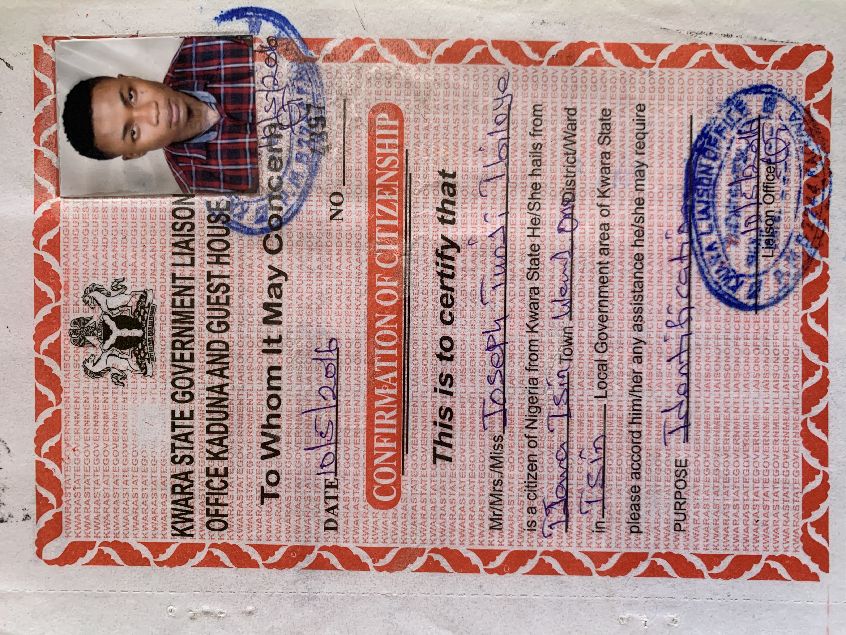 KWARA STATE GOVERNMENT LIAISON
OFFICE KADUNA AND GUEST HOUSE
To Whom It May Concern
DATE 10/5/2016 NO
CONFIRMATION OF CITIZENSHIP
This is to certify that
Mr/Mrs./Miss Joseph Tunji
is a citizen of Nigeria from Kwara State He/She hails from
Isin Town District/Ward
in Isin Local Government area of Kwara State
please accord him/her any assistance he/she may require
PURPOSE Identification
KWARA LIAISON OFFICE
Liaison Officer